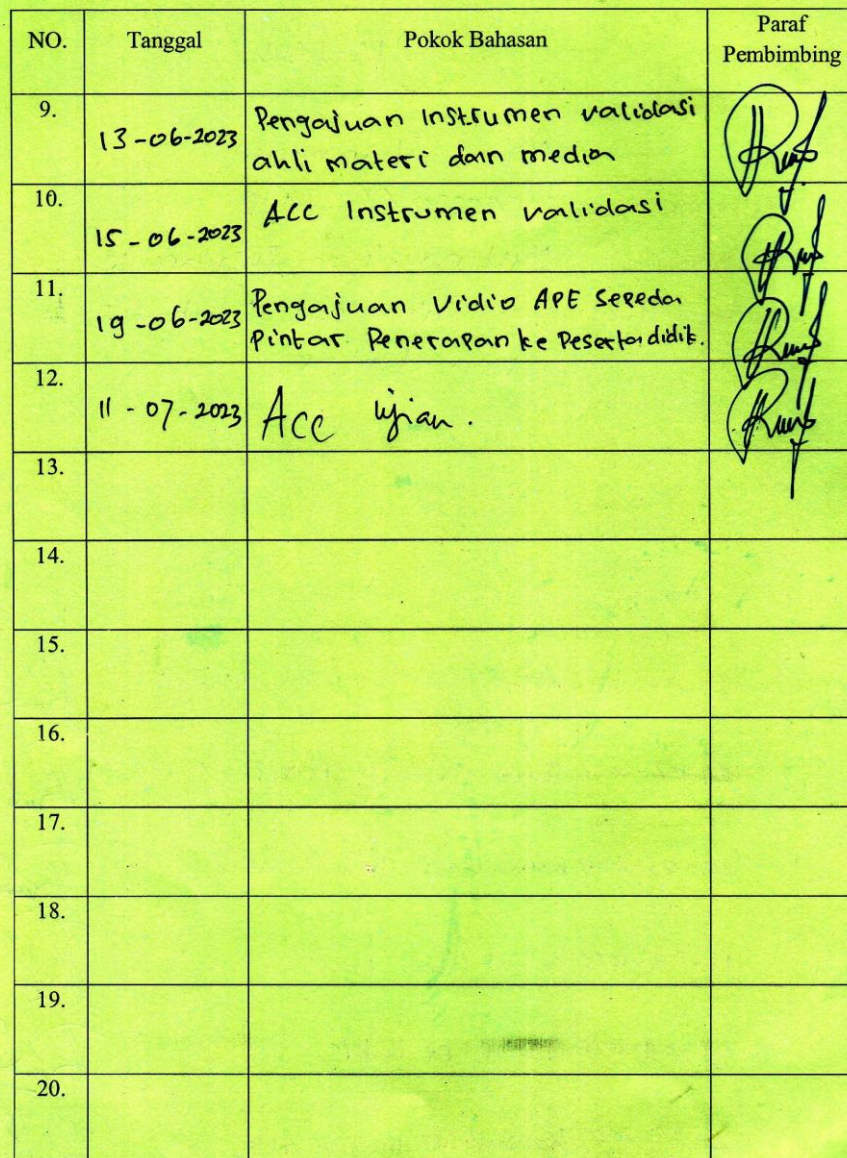 NO. Tanggal Pokok Bahasan Paraf
Pembimbing
9. 13-06-2023 Pengajuan Instrumen validasi
ahli materi dan media
10. 15-06-2023 ACC Instrumen validasi
11. 19-06-2023 Pengajuan Vidio APE Sepeda
Pintar Penerapan ke Peserta didik.
12. 11-07-2023 Acc ujian.
13.
14.
15.
16.
17.
18.
19.
20.